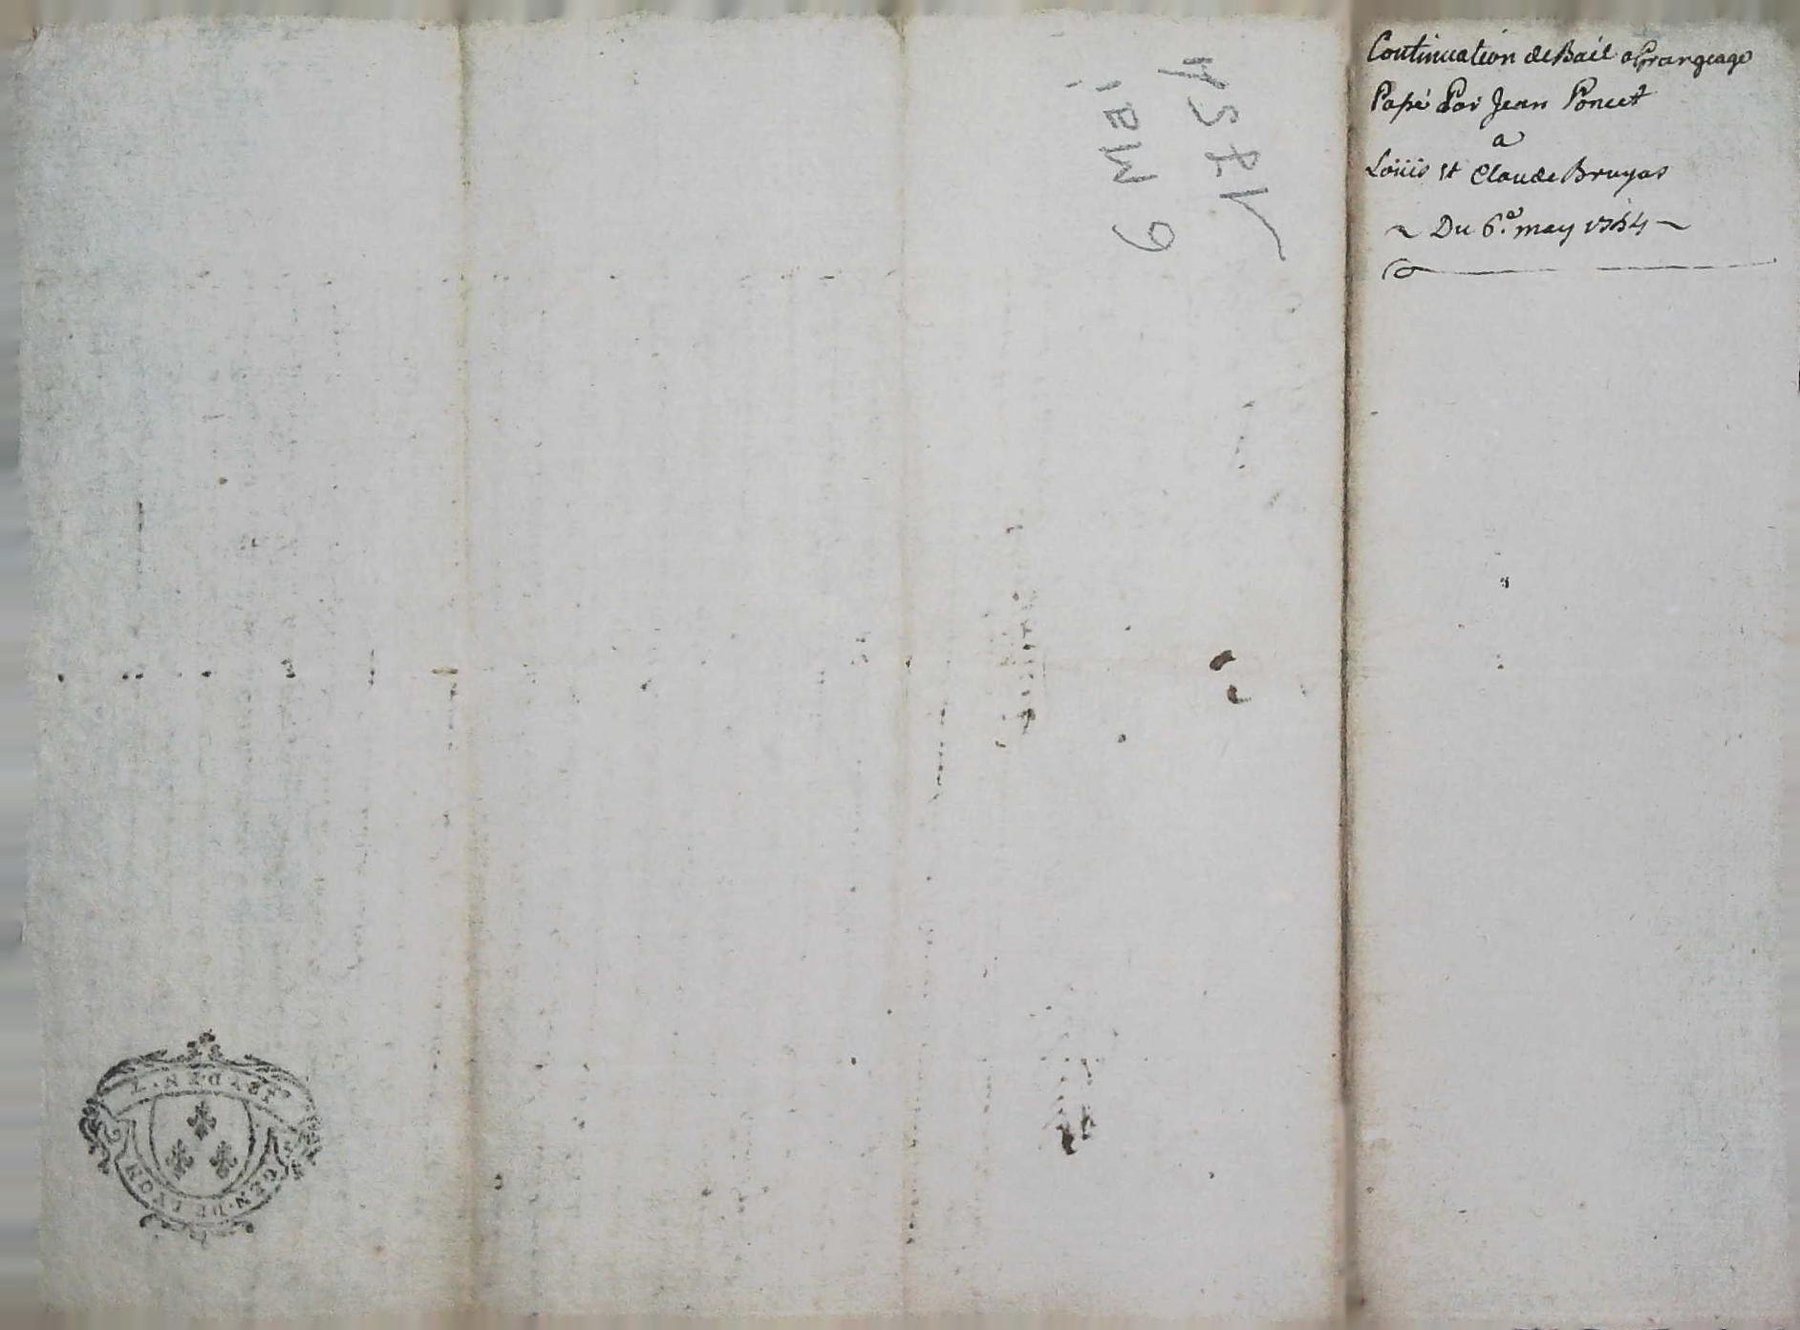 Continuation de Bail a Grangeage
Passé Par Jean Poncet
a
Loüis et Claude Bruyas
~ Du 6.e may 1754 ~
1754
9 Mai
GEN. DE LYON